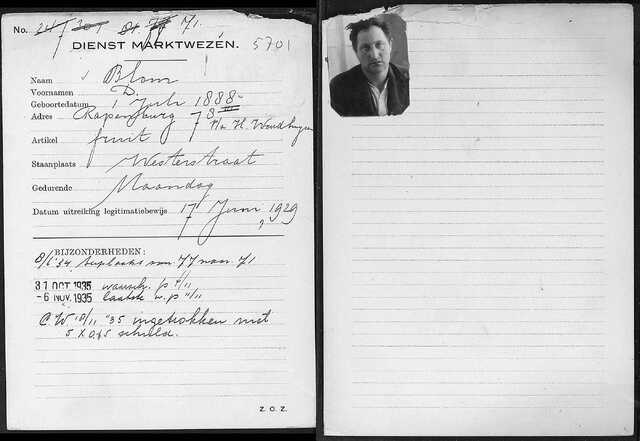 No. 71.
DIENST MARKTWEZEN.
5701
Naam Blom
Voornamen D.
Geboortedatum 1 Juli 1888
Adres Rapenburg 78 III
p/a H.
Artikel fruit
Staanplaats Westerstraat
Gedurende Maandag
Datum uitreiking legitimatiebewijs 17 Juni 1929
BIJZONDERHEDEN:
8/6 '34 van 77 naar 71
31 OCT. 1935 waarsch. p
-6 NOV. 1935 laatste w. p
C.W. '35 ingetrokken met
5 X 0.65 schuld.
Z. O. Z.